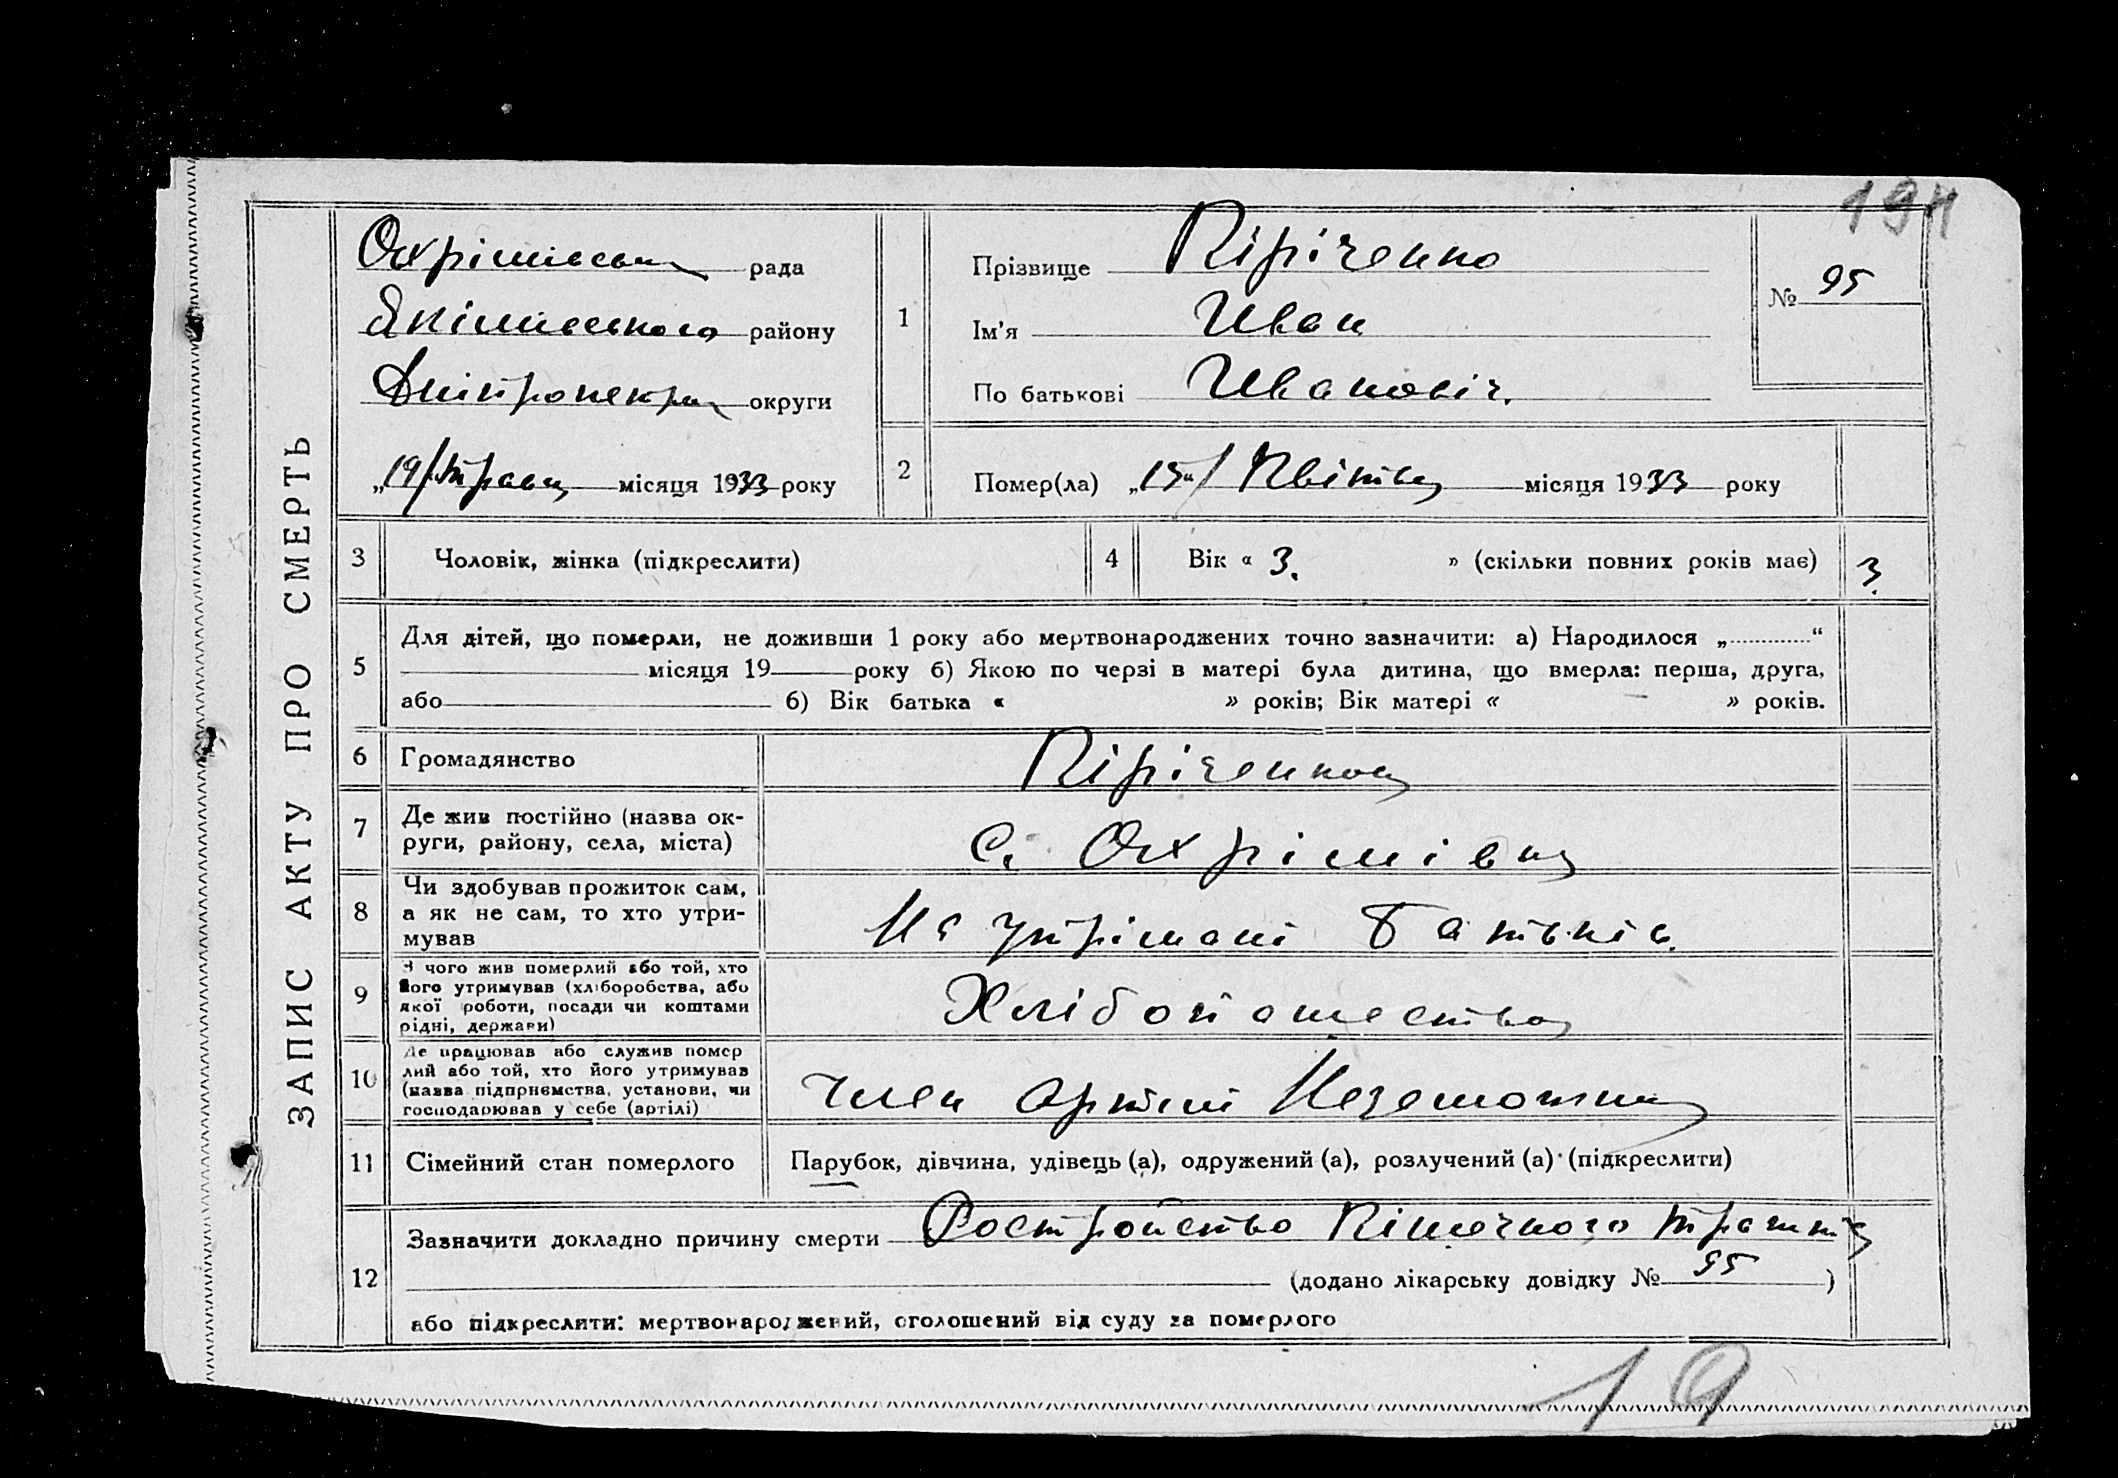 194
ЗАПИС АКТУ ПРО СМЕРТЬ
Охрімівська рада
Якімівського району
Дніпропетр округи
„19/травня місяця 1933 року
1
Прізвище Кіріченко
Ім'я Иван
По батькові Иванович.
№ 95
2
Помер(ла) „15“/ Квітня місяця 1933 року
3
Чоловік, жінка (підкреслити)
4
Вік « 3. » (скільки повних років має)
3.
5
Для дітей, що померли, не доживши 1 року або мертвонароджених точно зазначити: а) Народилося „............“
місяця 19 року б) Якою по черзі в матері була дитина, що вмерла: перша, друга,
або б) Вік батька « » років; Вік матері « » років.
6
Громадянство
Кіріченко
7
Де жив постійно (назва ок-
руги, району, села, міста)
С. Охрімівка
8
Чи здобував прожиток сам,
а як не сам, то хто утри-
мував
На утрімані батьків.
9
З чого жив померлий або той, хто
його утримував (хліборобства, або
якої роботи, посади чи коштами
рідні, держави)
Хлібопашества
10
Де працював або служив помер
лий або той, хто його утримував
(назва підприємства, установи, чи
господарював у себе (артілі)
Член артілі Незаможник
11
Сімейний стан померлого
Парубок, дівчина, удівець (а), одружений (а), розлучений (а) (підкреслити)
12
Зазначити докладно причину смерти Розстройство Кішечного тракта
(додано лікарську довідку № 95 )
або підкреслити: мертвонароджений, оголошений від суду за померлого
19